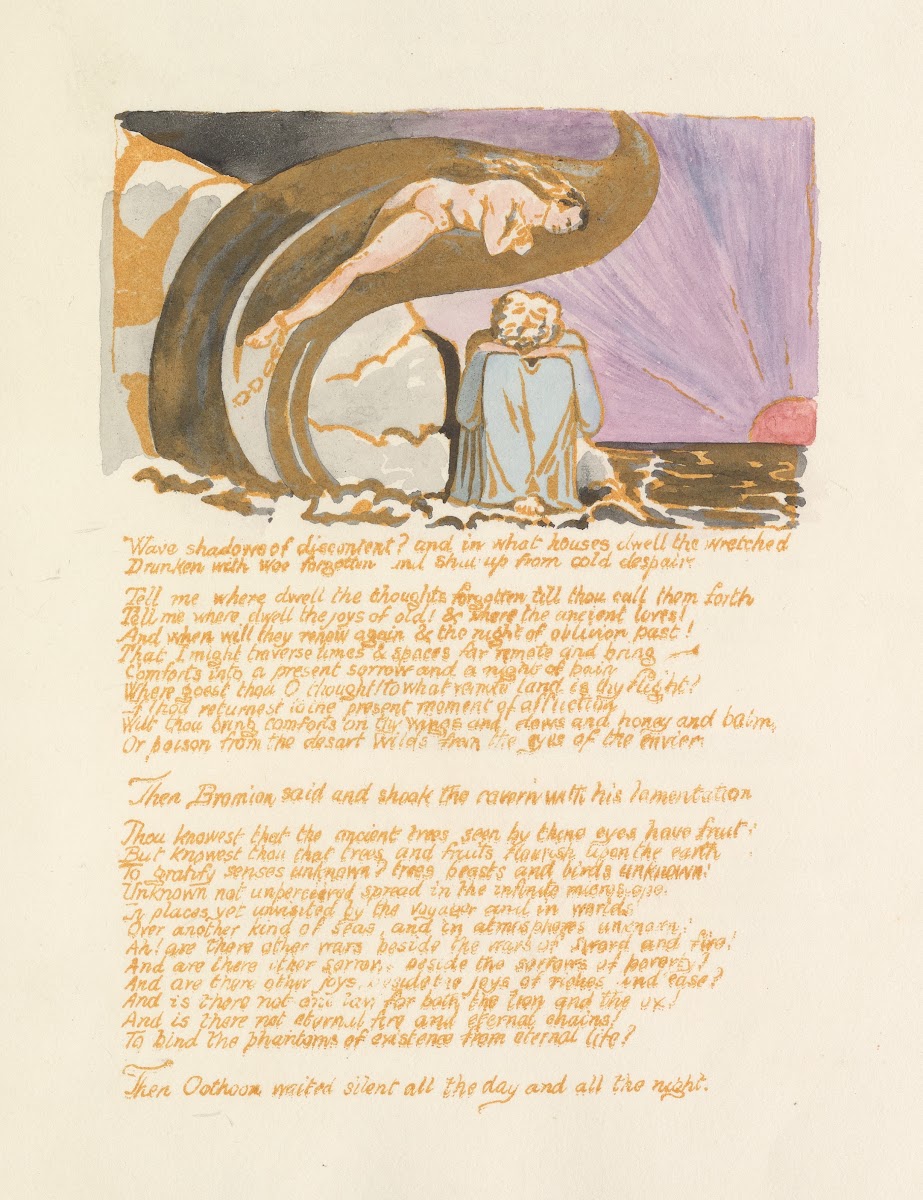 Wave shadows of discontent? and in what houses dwell the wretched
Drunken with woe forgotten and shut up from cold despair.
Tell me where dwell the thoughts forgotten till thou call them forth
Tell me where dwell the joys of old! & where the ancient loves!
And when will they renew again & the night of oblivion past!
That I might traverse times & spaces far remote and bring
Comforts into a present sorrow and a night of pain
Where goest thou O thought! to what remote land is thy flight?
If thou returnest to the present moment of affliction
Wilt thou bring comforts on thy wings and dews and honey and balm,
Or poison from the desart wilds, from the eyes of the envier.
Then Bromion said and shook the cavern with his lamentation
Thou knowest that the ancient trees seen by thine eyes have fruit;
But knowest thou that trees and fruits flourish upon the earth
To gratify senses unknown? trees beasts and birds unknown:
Unknown, not unpercieved, spread in the infinite microscope,
In places yet unvisited by the voyager and in worlds
Over another kind of seas, and in atmospheres unknown:
Ah! are there other wars, beside the wars of sword and fire!
And are there other sorrows, beside the sorrows of poverty!
And are there other joys, beside the joys of riches and ease?
And is there not one law for both the lion and the ox?
And is there not eternal fire and eternal chains!
To bind the phantoms of existence from eternal life?
Then Oothoon waited silent all the day and all the night.